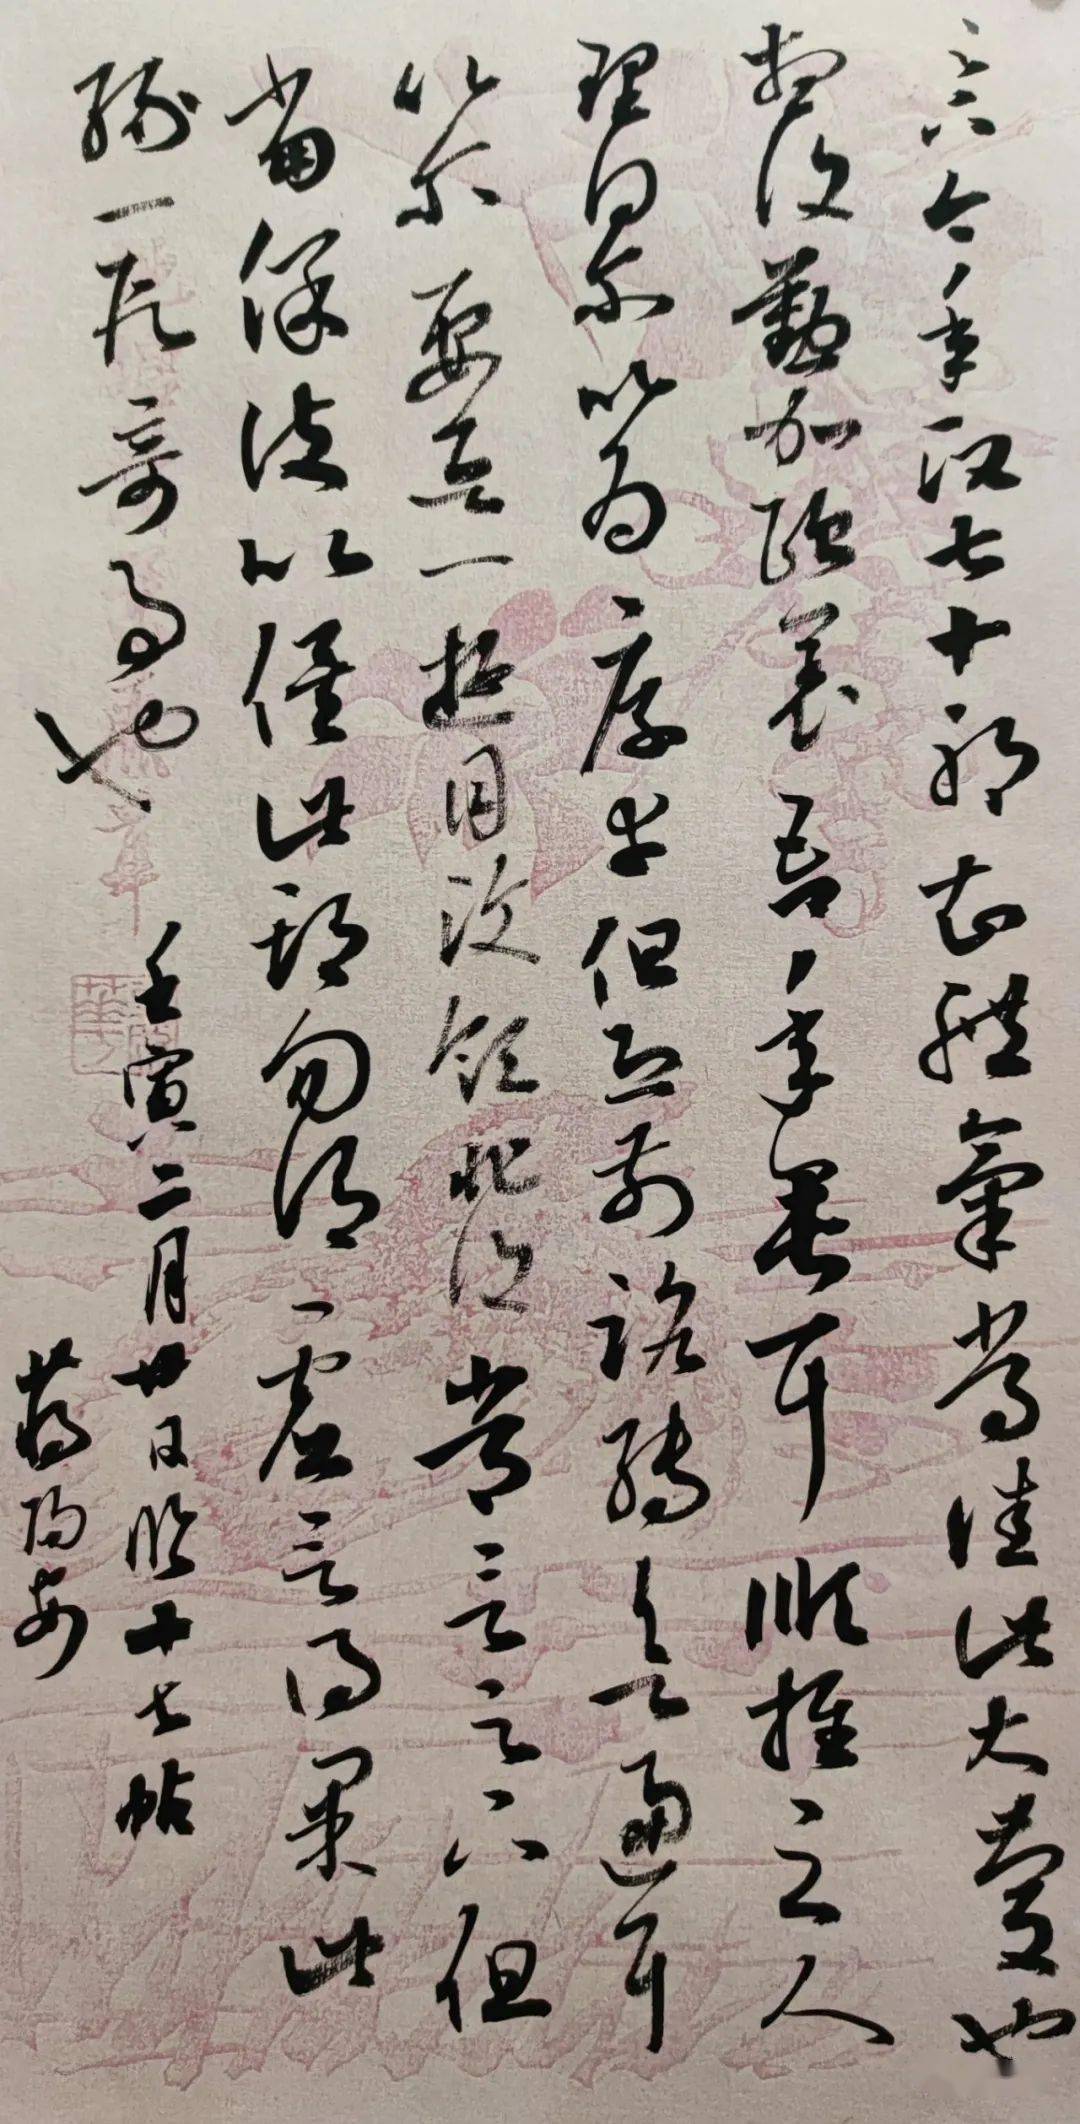 足下今年政七十耶知體氣常佳此大慶也
想復懃加頤養吾年垂耳順推之人
理得爾以為厚幸但恐前路轉欲逼耳
以爾要欲一遊目汶領非復常言足下但
當保護以俟此期勿謂虛言得果此
緣一段奇事也
壬寅二月廿日臨十七帖